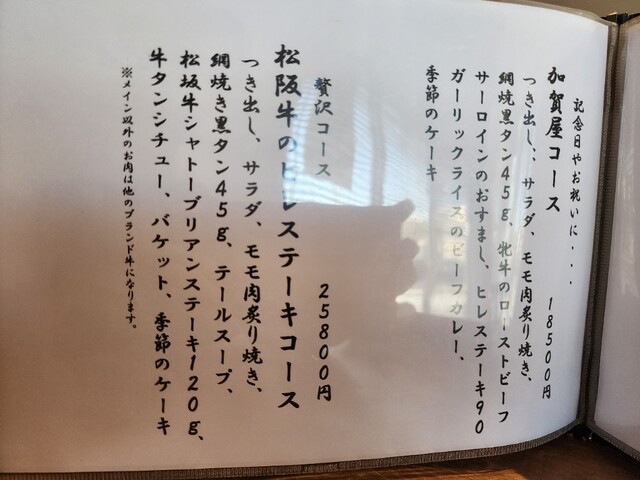 記念日やお祝いに・・・
加賀屋コース 18500円
つき出し、、サラダ、モモ肉炙り焼き、
網焼黒タン45g、牝牛のローストビーフ
サーロインのおすまし、ヒレステーキ90
ガーリックライスのビーフカレー、
季節のケーキ
贅沢コース 25800円
松阪牛のヒレステーキコース
つき出し、サラダ、モモ肉炙り焼き、
網焼き黒タン45g、テールスープ、
松坂牛シャトーブリアンステーキ120g、
牛タンシチュー、バケット、季節のケーキ
※メイン以外のお肉は他のブランド牛になります。